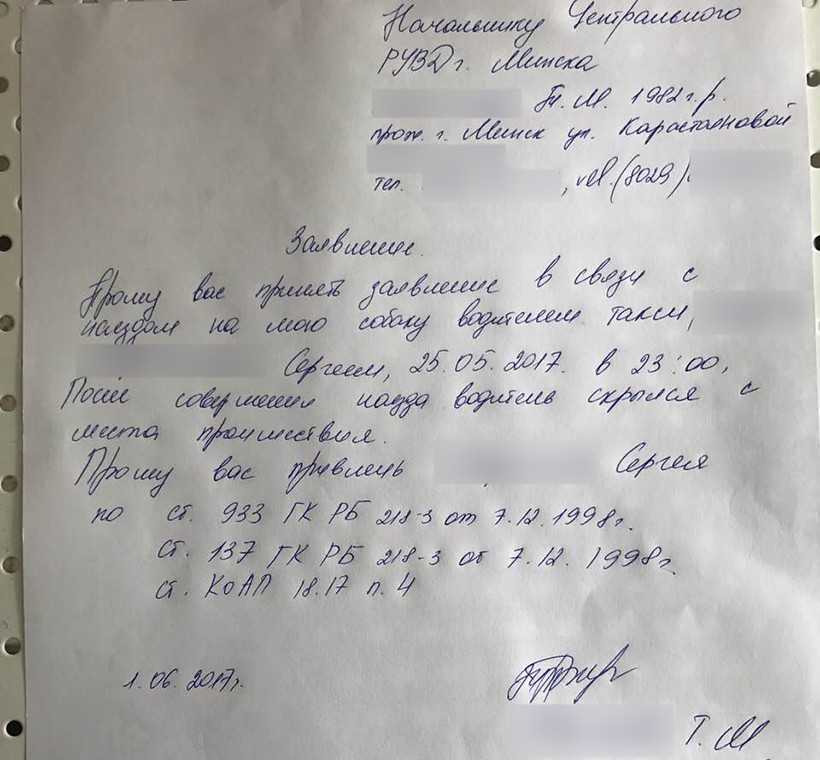 Начальнику Центрального
РУВД г. Минска
Т. М. 1982 г.р.
прож. г. Минск ул. Карастояновой
тел. , м. (8029)
Заявление.
Прошу вас принять заявление в связи с
наездом на мою собаку водителем такси,
Сергеем, 25.05.2017. в 23:00,
После совершения наезда водитель скрылся с
места происшествия.
Прошу вас привлечь Сергея
по ст. 933 ГК РБ 218-З от 7.12.1998г.
ст. 137 ГК РБ 218-З от 7.12.1998г.
ст. КоАП 18.17 п. 4
1.06.2017г.
Т. М